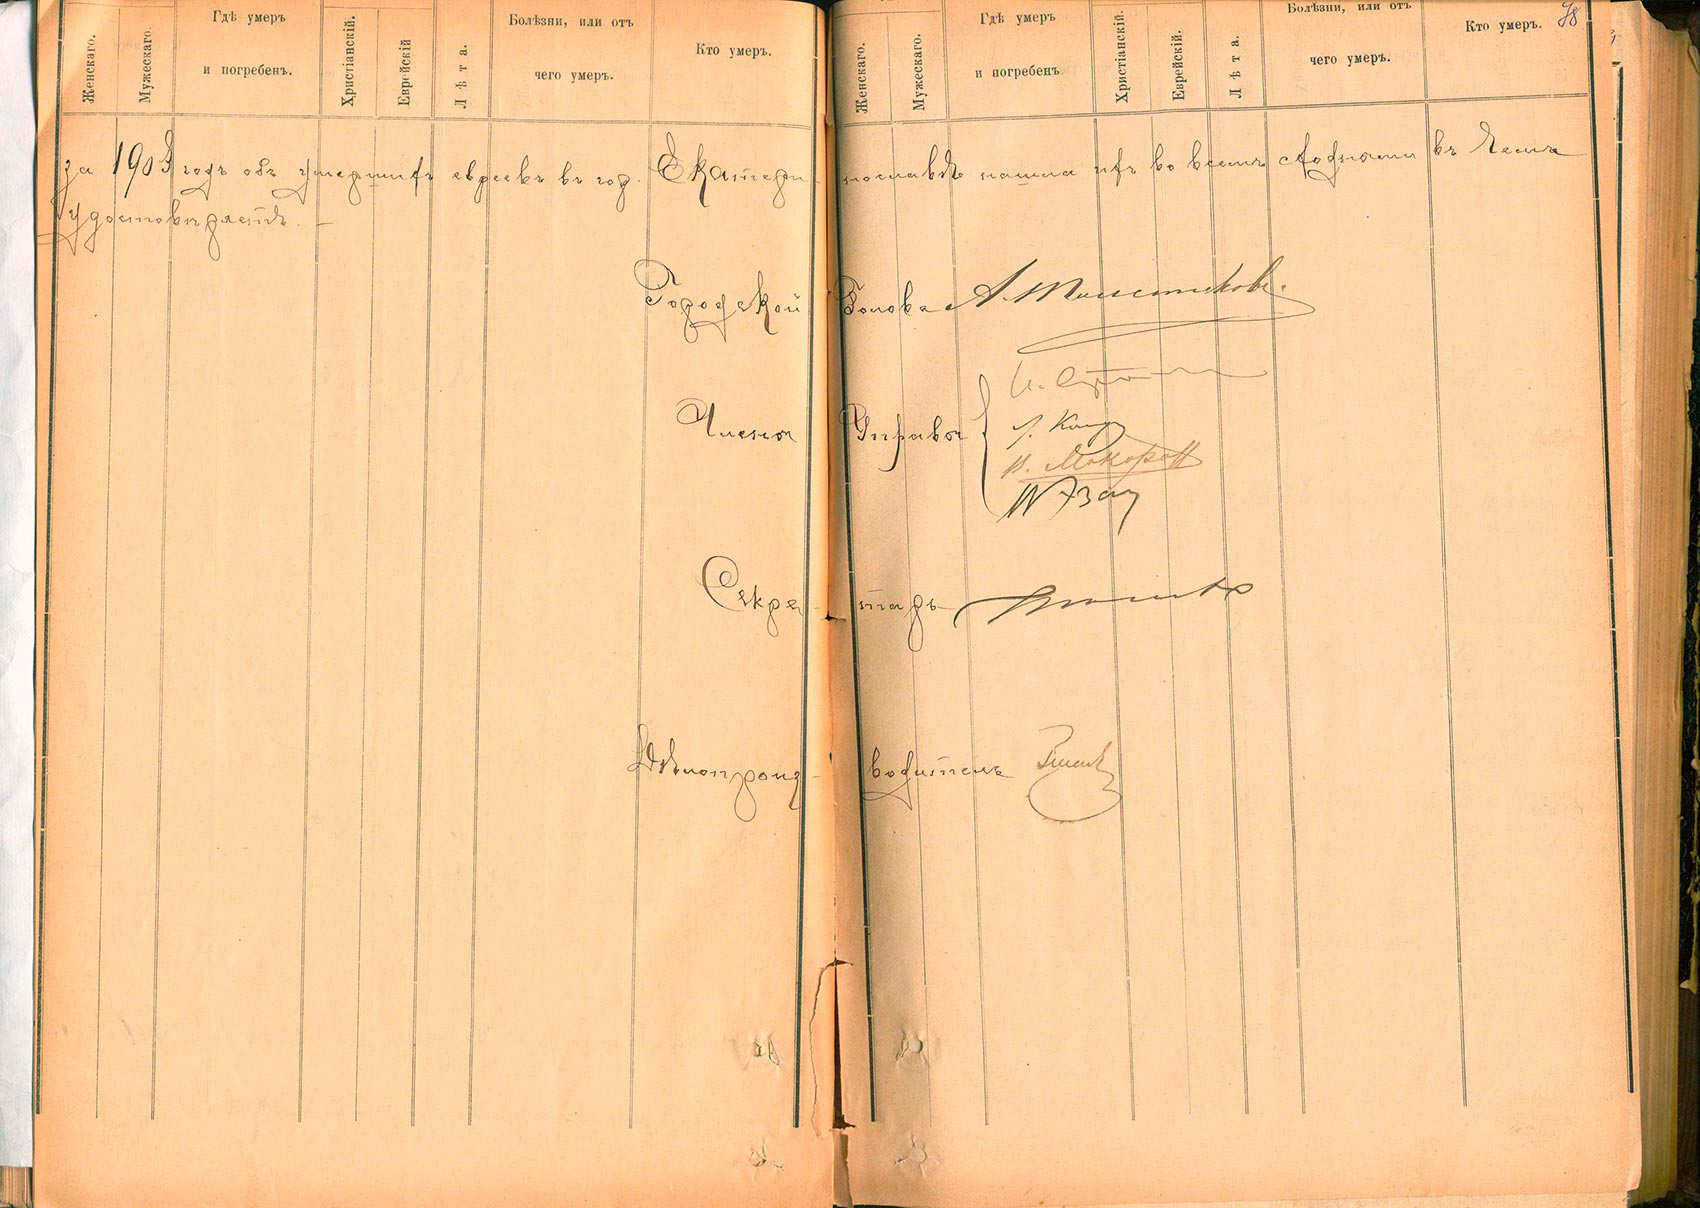 Женскаго.
Мужескаго.
Гдѣ умеръ
и погребенъ.
Христіанскій.
Еврейскій
Лѣта.
Болѣзни, или отъ
чего умеръ.
Кто умеръ.
Женскаго.
Мужескаго.
Гдѣ умеръ
и погребенъ
Христіанскій.
Еврейскій.
Лѣта.
Болѣзни, или отъ
чего умеръ.
Кто умеръ.
78
за 1903 годъ объ умершихъ евреевъ въ гор. Екатери- нославѣ нашла ихъ во всемъ сходными въ чемъ
удостовѣряетъ. —
Городской Голова А. Толстиковъ.
Члены Управы
Макаров
Секре- тарь
Дѣлопроиз- водитель